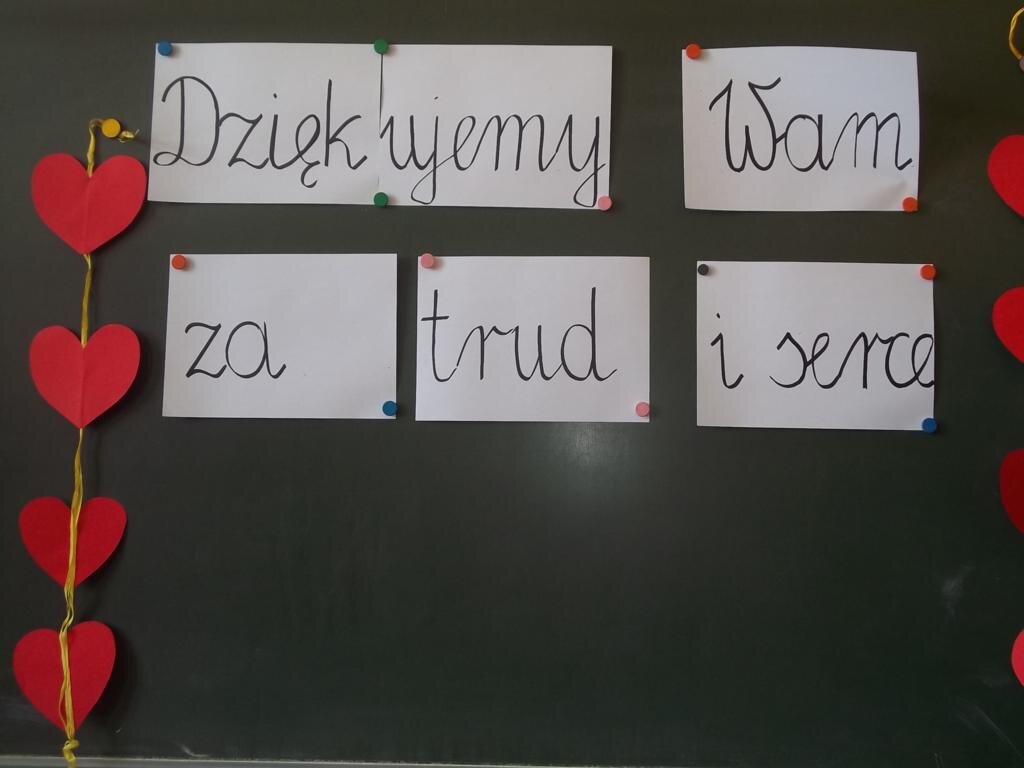 Dziękujemy Wam
za trud i serce